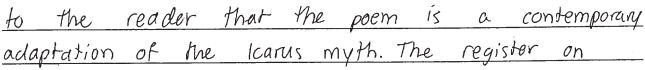 to the reader that the poem is a contemporary
adaptation of the Icarus myth. The register on